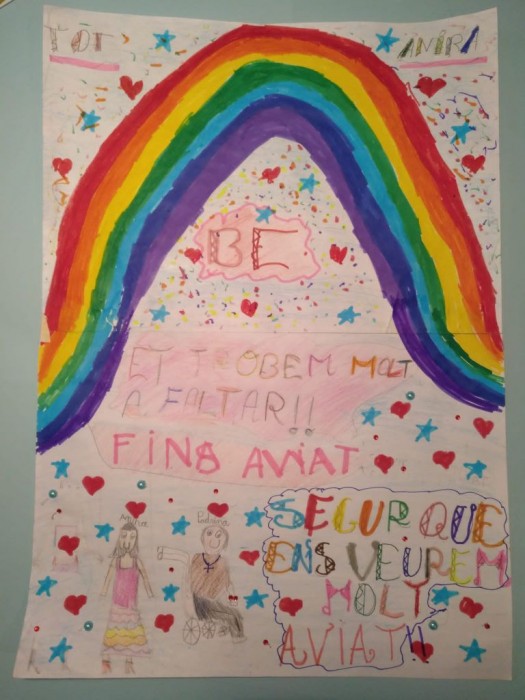 TOT ANIRA
BE
ET TROBEM MOLT
A FALTAR!!
FINS AVIAT
Padrina
SEGUR QUE
ENS VEUREM
MOLT
AVIAT!!